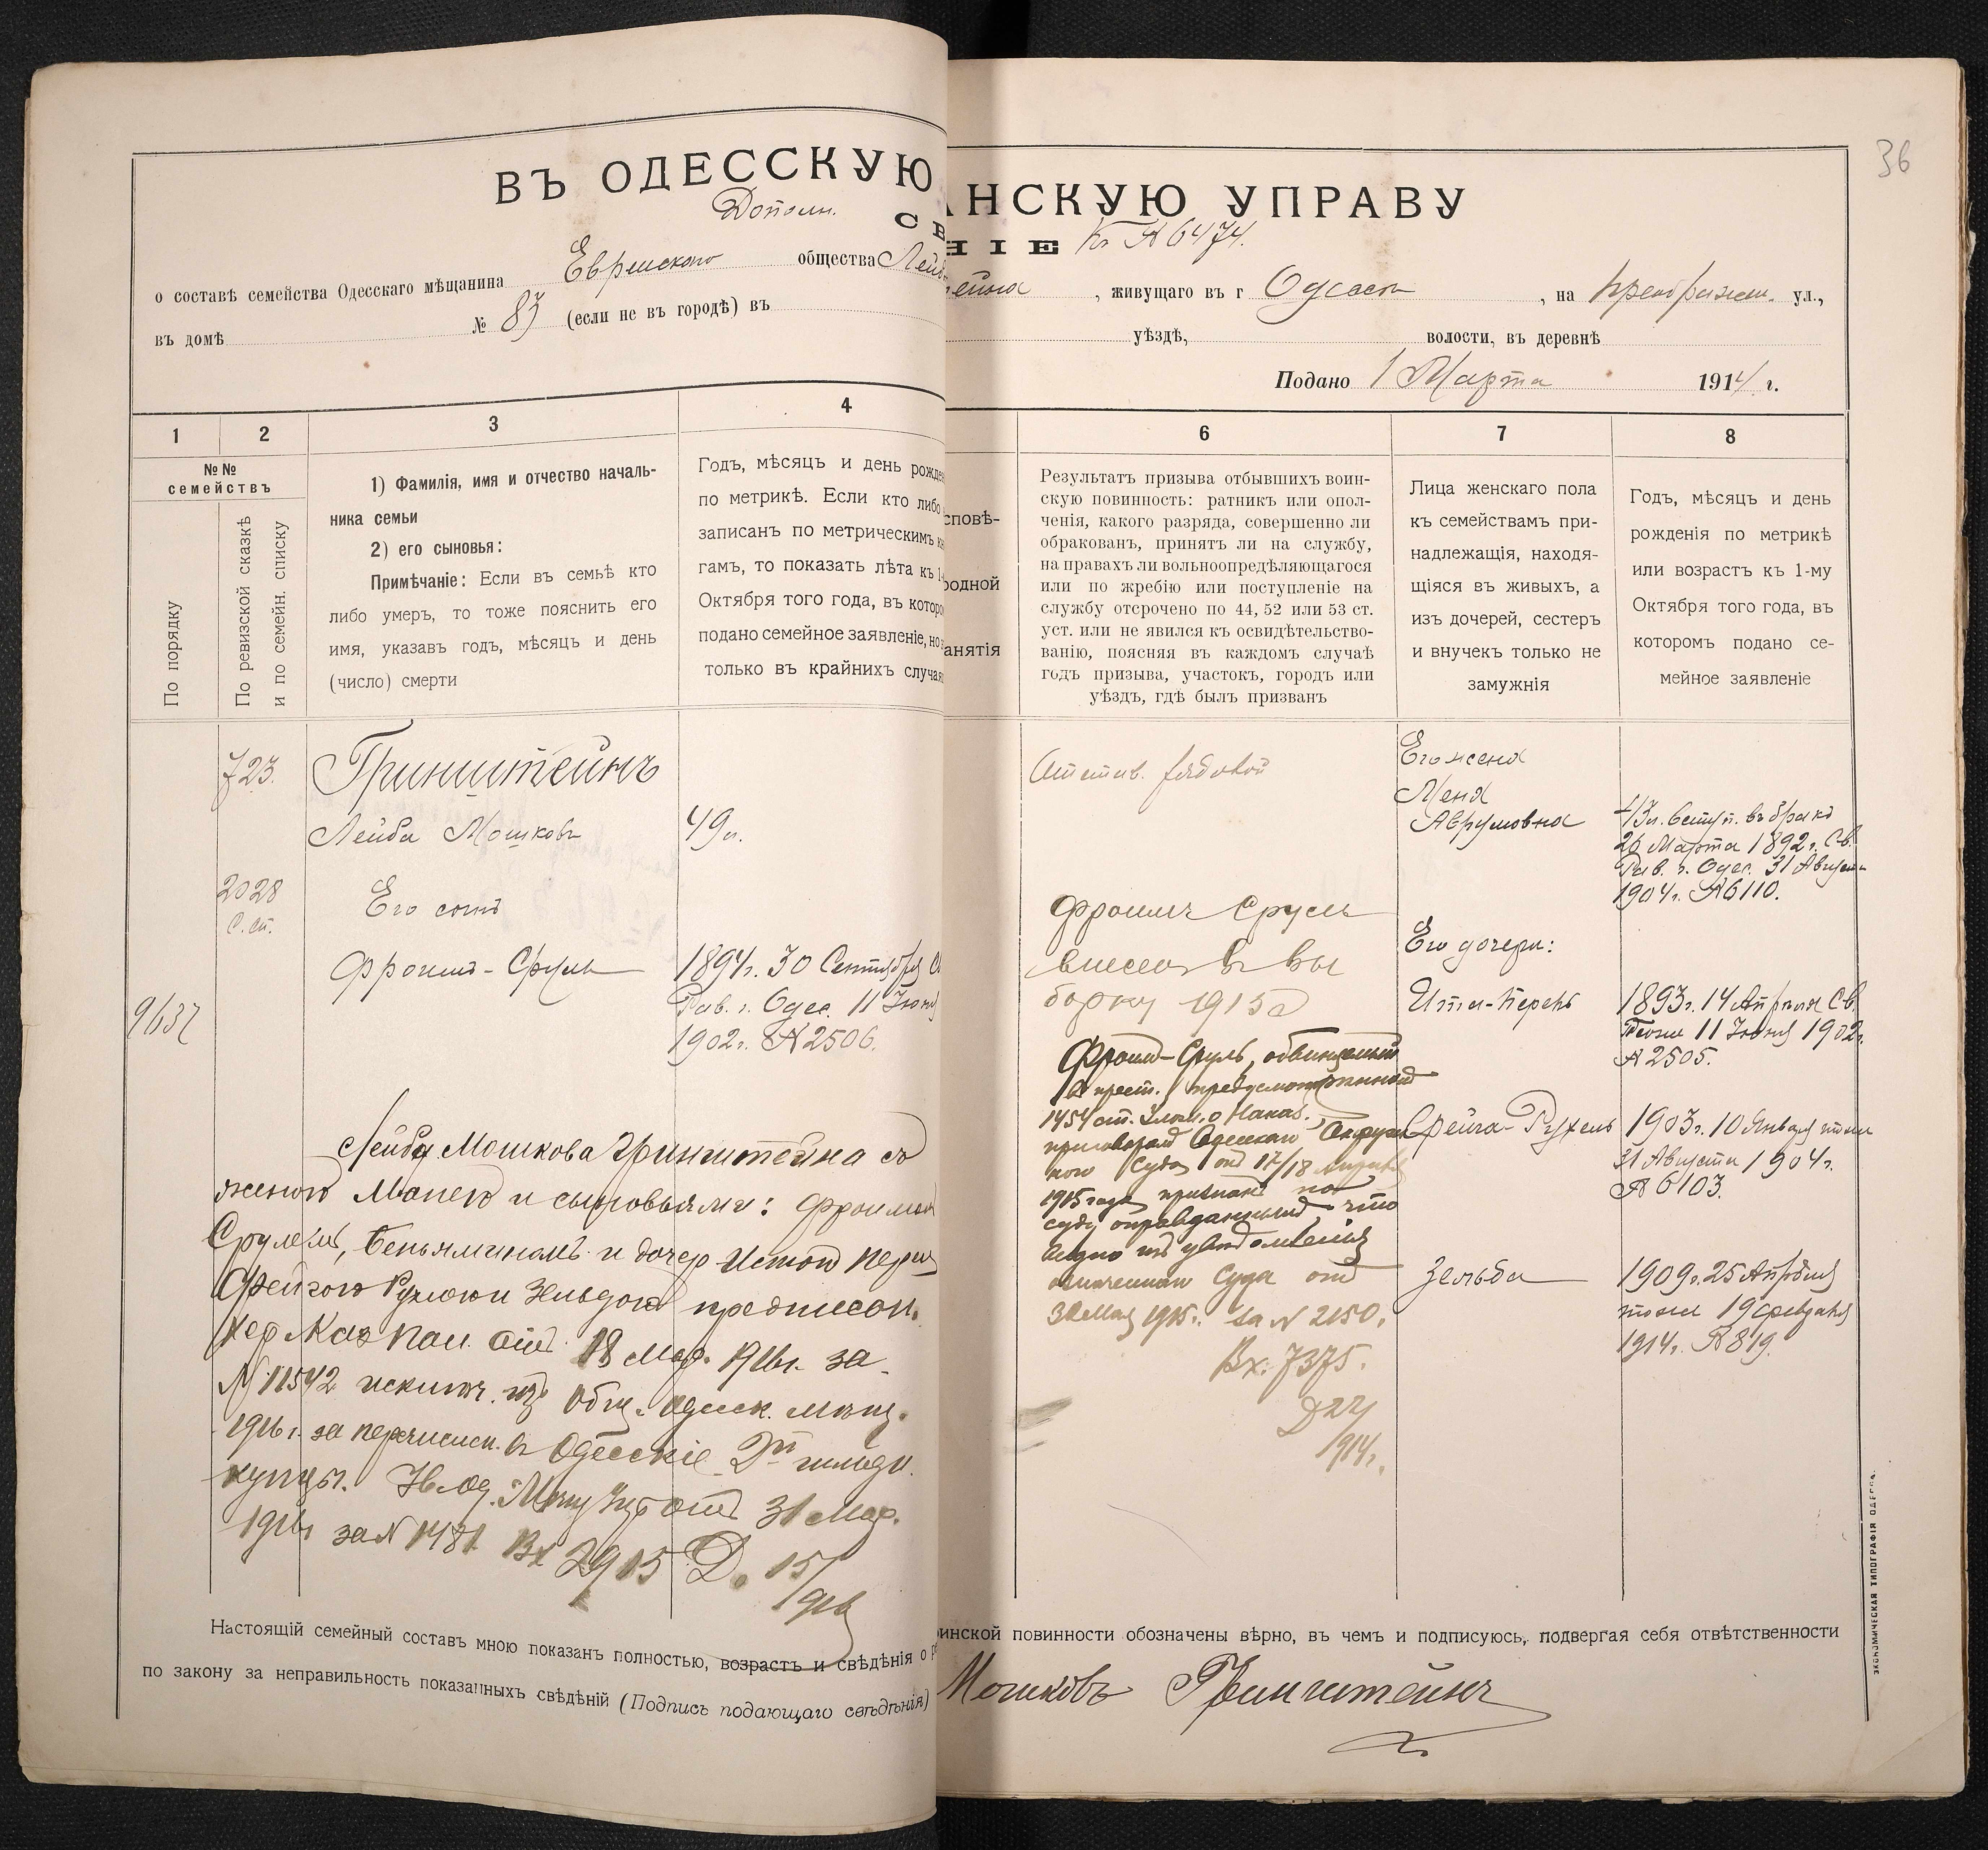 36
ВЪ ОДЕССКУЮ
АНСКУЮ УПРАВУ
Дополн.
СВ
НІЕ Къ № 6474.
о составѣ семейства Одесскаго мѣщанина Еврейскаго общества Лейб
ейна, живущаго въ г Одессѣ, на Преображен. ул.,
въ домѣ № 83 (если не въ городѣ) въ
уѣздѣ, волости, въ деревнѣ
Подано 1 Марта 1914 г.
1
2
3
4
6
7
8
№№
семействъ
По порядку
По ревизской сказкѣ
и по семейн. списку
1) Фамилія, имя и отчество началь-
ника семьи
2) его сыновья:
Примѣчаніе: Если въ семьѣ кто
либо умеръ, то тоже пояснить его
имя, указавъ годъ, мѣсяцъ и день
(число) смерти
Годъ, мѣсяцъ и день рожде
по метрикѣ. Если кто либо
записанъ по метрическимъ кн
гамъ, то показать лѣта къ 1-
Октября того года, въ которо
подано семейное заявленіе, но
только въ крайнихъ случая
сповѣ-
родной
анятія
Результатъ призыва отбывшихъ воин-
скую повинность: ратникъ или опол-
ченія, какого разряда, совершенно ли
обракованъ, принятъ ли на службу,
на правахъ ли вольноопредѣляющагося
или по жребію или поступленіе на
службу отсрочено по 44, 52 или 53 ст.
уст. или не явился къ освидѣтельство-
ванію, поясняя въ каждомъ случаѣ
годъ призыва, участокъ, городъ или
уѣздъ, гдѣ былъ призванъ
Лица женскаго пола
къ семействамъ при-
надлежащія, находя-
щіяся въ живыхъ, а
изъ дочерей, сестеръ
и внучекъ только не
замужнія
Годъ, мѣсяцъ и день
рожденія по метрикѣ
или возрастъ къ 1-му
Октября того года, въ
которомъ подано се-
мейное заявленіе
723.
Гринштейнъ
Лейба Мошковъ
49 л.
2028
С. сп.
Его сынъ
Фроимъ-Сруль
1894 г. 30 Сентября С
Рав. г. Одес. 11 Іюня
1902 г. № 2506.
9637
Лейба Мошкова Гринштейна съ
женою Манею и сыновьями: Фроимом
Срулемъ, Беньяминомъ и дочер Итою Перль
Фейгою Рухлею и Зельдою предписан.
Хер Каз Пал. отъ 18 Мар. 1916 г. за
№ 11542 исключ. изъ Общ. Одесск. мѣщ.
1916 г. за перечислен. въ Одесскіе 2й гильд.
купцы. Ув. Од. Мѣщ Упр отъ 31 Мар.
1916 г за № 1481 Вх 2915 Д. 15/
1916
рядовой
Фроимъ Сруль
внесенъ въ вы
борку 1915 г
Фроим-Сруль, обвиняемый
въ прест. предусмотрѣнной
1454 ст. Улож. о Наказ.,
приговоромъ Одесскаго Окруж
наго Суда отъ 17/18 Апрѣля
1915 года признанъ по
суду оправданнымъ, что
видно изъ увѣдомленія
означеннаго Суда отъ
30 Мая 1915 г. за № 2150.
Вх. 7375.
Д 22/
1914 г.
Его жена
Меня
Аврумовна
43 л. вступ. въ бракъ
26 Марта 1892 г. Св.
Рав. г. Одес. 31 Августа
1904 г. № 6110.
Его дочери:
Ита-Перель
1893 г. 14 Апрѣля Св.
Тоже 11 Іюня 1902 г.
№ 2505.
Фейга-Рухель
1903 г. 10 Января тоже
31 Августа 1904 г.
№ 6103.
Зельда
1909 г. 25 Апрѣля
тоже 19 февраля
1914 г. № 819.
Настоящій семейный составъ мною показанъ полностью, возрастъ и свѣдѣнія о
инской повинности обозначены вѣрно, въ чемъ и подписуюсь, подвергая себя отвѣтственности
по закону за неправильность показанныхъ свѣдѣній (Подпись подающаго свѣдѣнія)
Мошковъ Гринштейнъ
ЭКОНОМИЧЕСКАЯ ТИПОГРАФІЯ ОДЕССА.